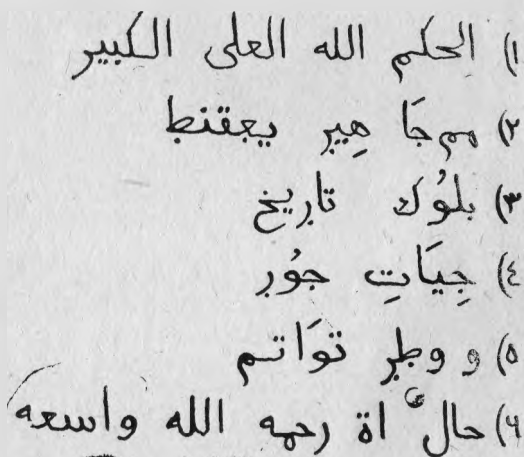 ١) الحكم الله العلى الكبير
٢) مم جَا هِير يعقنط
٣) بلُوك تاريخ
٤) جِيَاتِ جوُر
٥) و وطر توَاتم
٦) حال اة رحمه الله واسعه